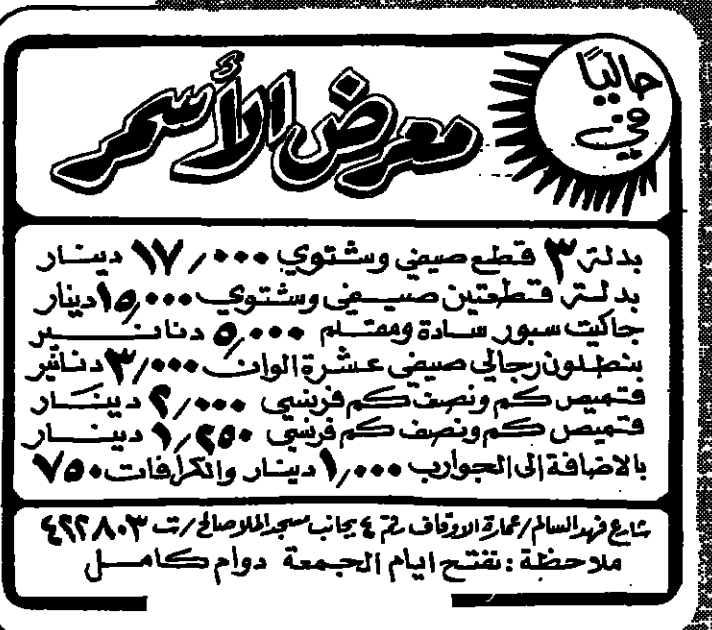 حاليًا
في
معرض الأسمر
بدلة ٣ قطع صيفي وشتوي ١٧٫٠٠٠ دينـار
بدلـة قـطعتين صيـفي وشتوي ١٥٫٠٠٠ دينار
جاكيت سبور سـادة ومقـلم ٥٫٠٠٠ دنانـير
بنطلون رجالي صيفي عـشرة الوان ٣٫٠٠٠ دنـانير
قميص كم ونصف كم فرنسي ٢٫٠٠٠ دينـار
قميص كم ونصف كم فرنسي ١٫٢٥٠ دينـار
بالاضافة الى الجوارب ١٫٠٠٠ دينـار والكرافات ٧٥٠
شارع فهد السالم / عمارة الاوقاف رقم ٤ بجانب مسجد الملا صالح / ت ٤٢٢٨٠٣
ملاحظة : نفتح ايام الجمعة دوام كامـل